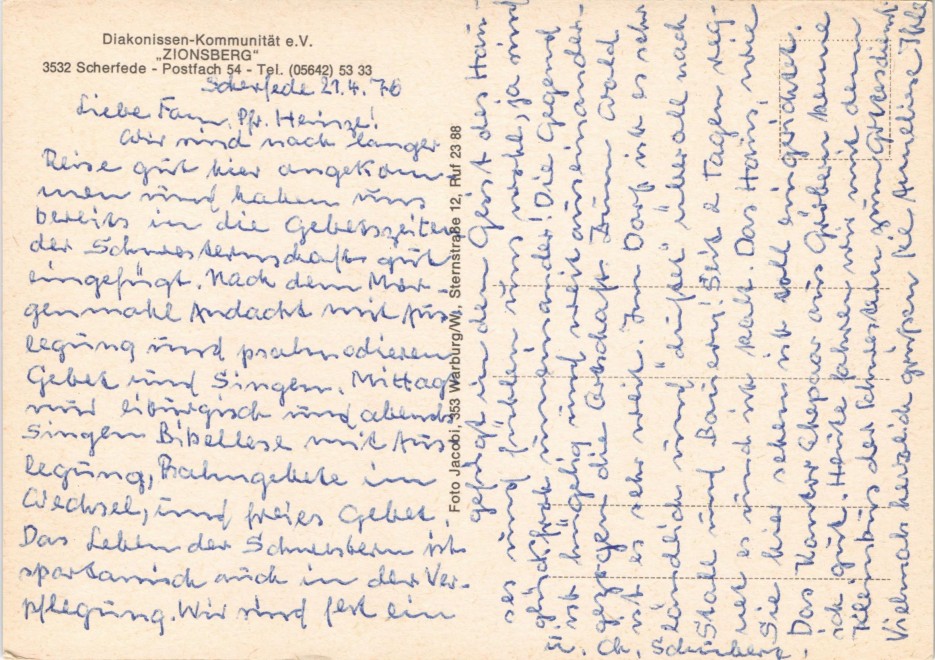 Diakonissen-Kommunität e.V.
„ZIONSBERG"
3532 Scherfede - Postfach 54 - Tel. (05642) 53 33
Scherfede 21.4.76
Liebe Fam. Pfr. Heinze!
Wir sind nach langer
Reise gut hier angekom-
men und haben uns
bereits in die Gebetszeiten
der Schwesternschaft gut
eingefügt. Nach dem Mor-
genmahl Andacht mit Aus-
legung und psalmodieren
Gebet und Singen. Mittag
nur liturgisch und abends
Singen Bibellese mit Aus-
legung, Psalmgebete im
Wechsel, und freies Gebet.
Das Leben der Schwestern ist
spartanisch auch in der Ver-
pflegung. Wir sind fest ein
Foto Jacobi, 353 Warburg/W., Sternstraße 12, Ruf 23 88
gefügt in den Geist des Hau-
ses und fühlen uns wohl, ja sind
glücklich miteinander! Die Gegend
ist hügelig und weit auseinander-
gezogen die Ortschaft. Zum Wald
ist es sehr weit. Im Dorf ist es sehr
ländlich und "duftet" überall nach
Stall und Bauern! Seit 2 Tagen reg-
net es und ist kalt. Das Haus, wie
Sie hier sehen ist toll eingerichtet.
Das Kantor Ehepaar aus Gröben kenne
ich gut. Heute fahren wir mit dem
Kleinbus der Schwestern zum Gottesdienst.
Vielmals herzlich grüßen Sie Anneliese Ihle
u. Ch. Schubert.